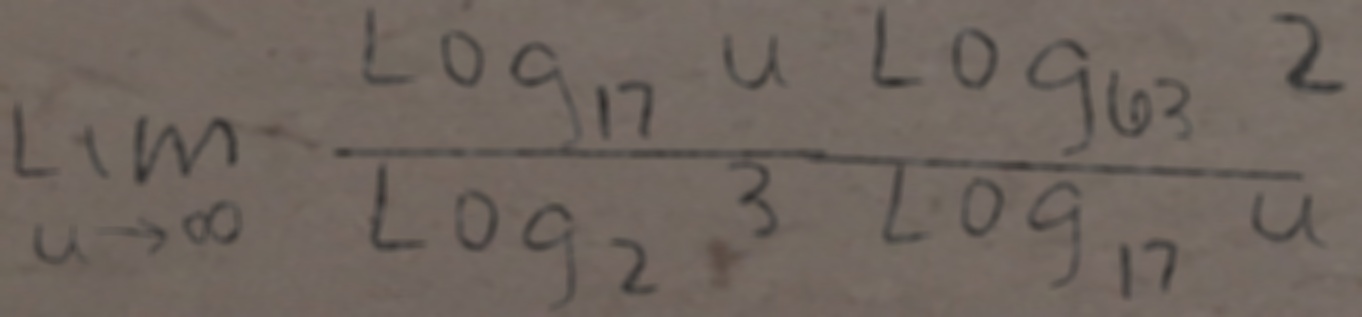 Lim_{u→∞} \frac{Log_{17} u Log_{63} 2}{Log_2 3 Log_{17} u}